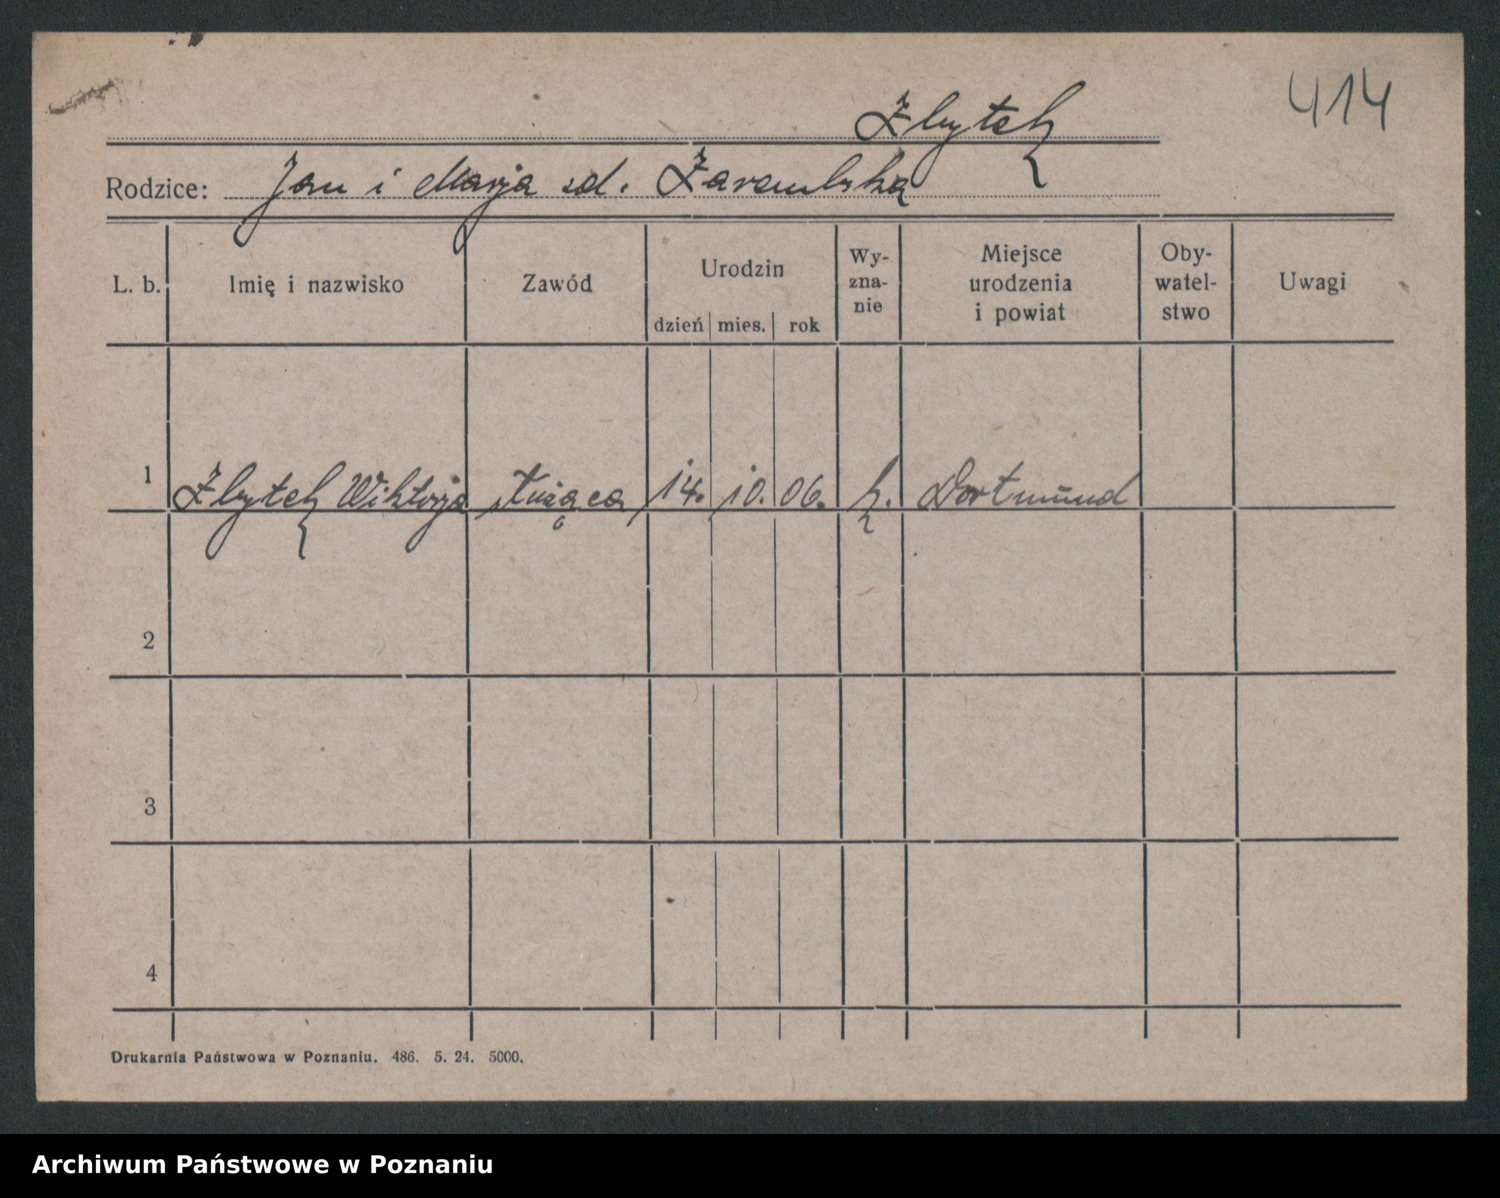 414
Zbytek
Rodzice: Jan i Marja zd. Zarembska
L. b. Imię i nazwisko Zawód Urodzin dzień mies. rok Wy-zna-nie Miejsce urodzenia i powiat Oby-watel-stwo Uwagi
1 Zbytek Wiktorja służąca 14. 10. 06. k. Dortmund
2
3
4
Drukarnia Państwowa w Poznaniu. 486. 5. 24. 5000.
Archiwum Państwowe w Poznaniu